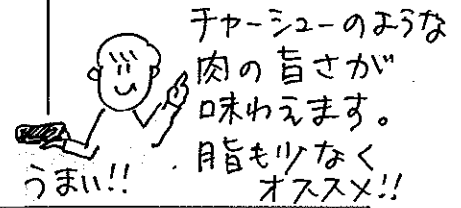 チャーシューのような
肉の旨さが
味わえます。
脂も少なく
オススメ!!
うまい!!